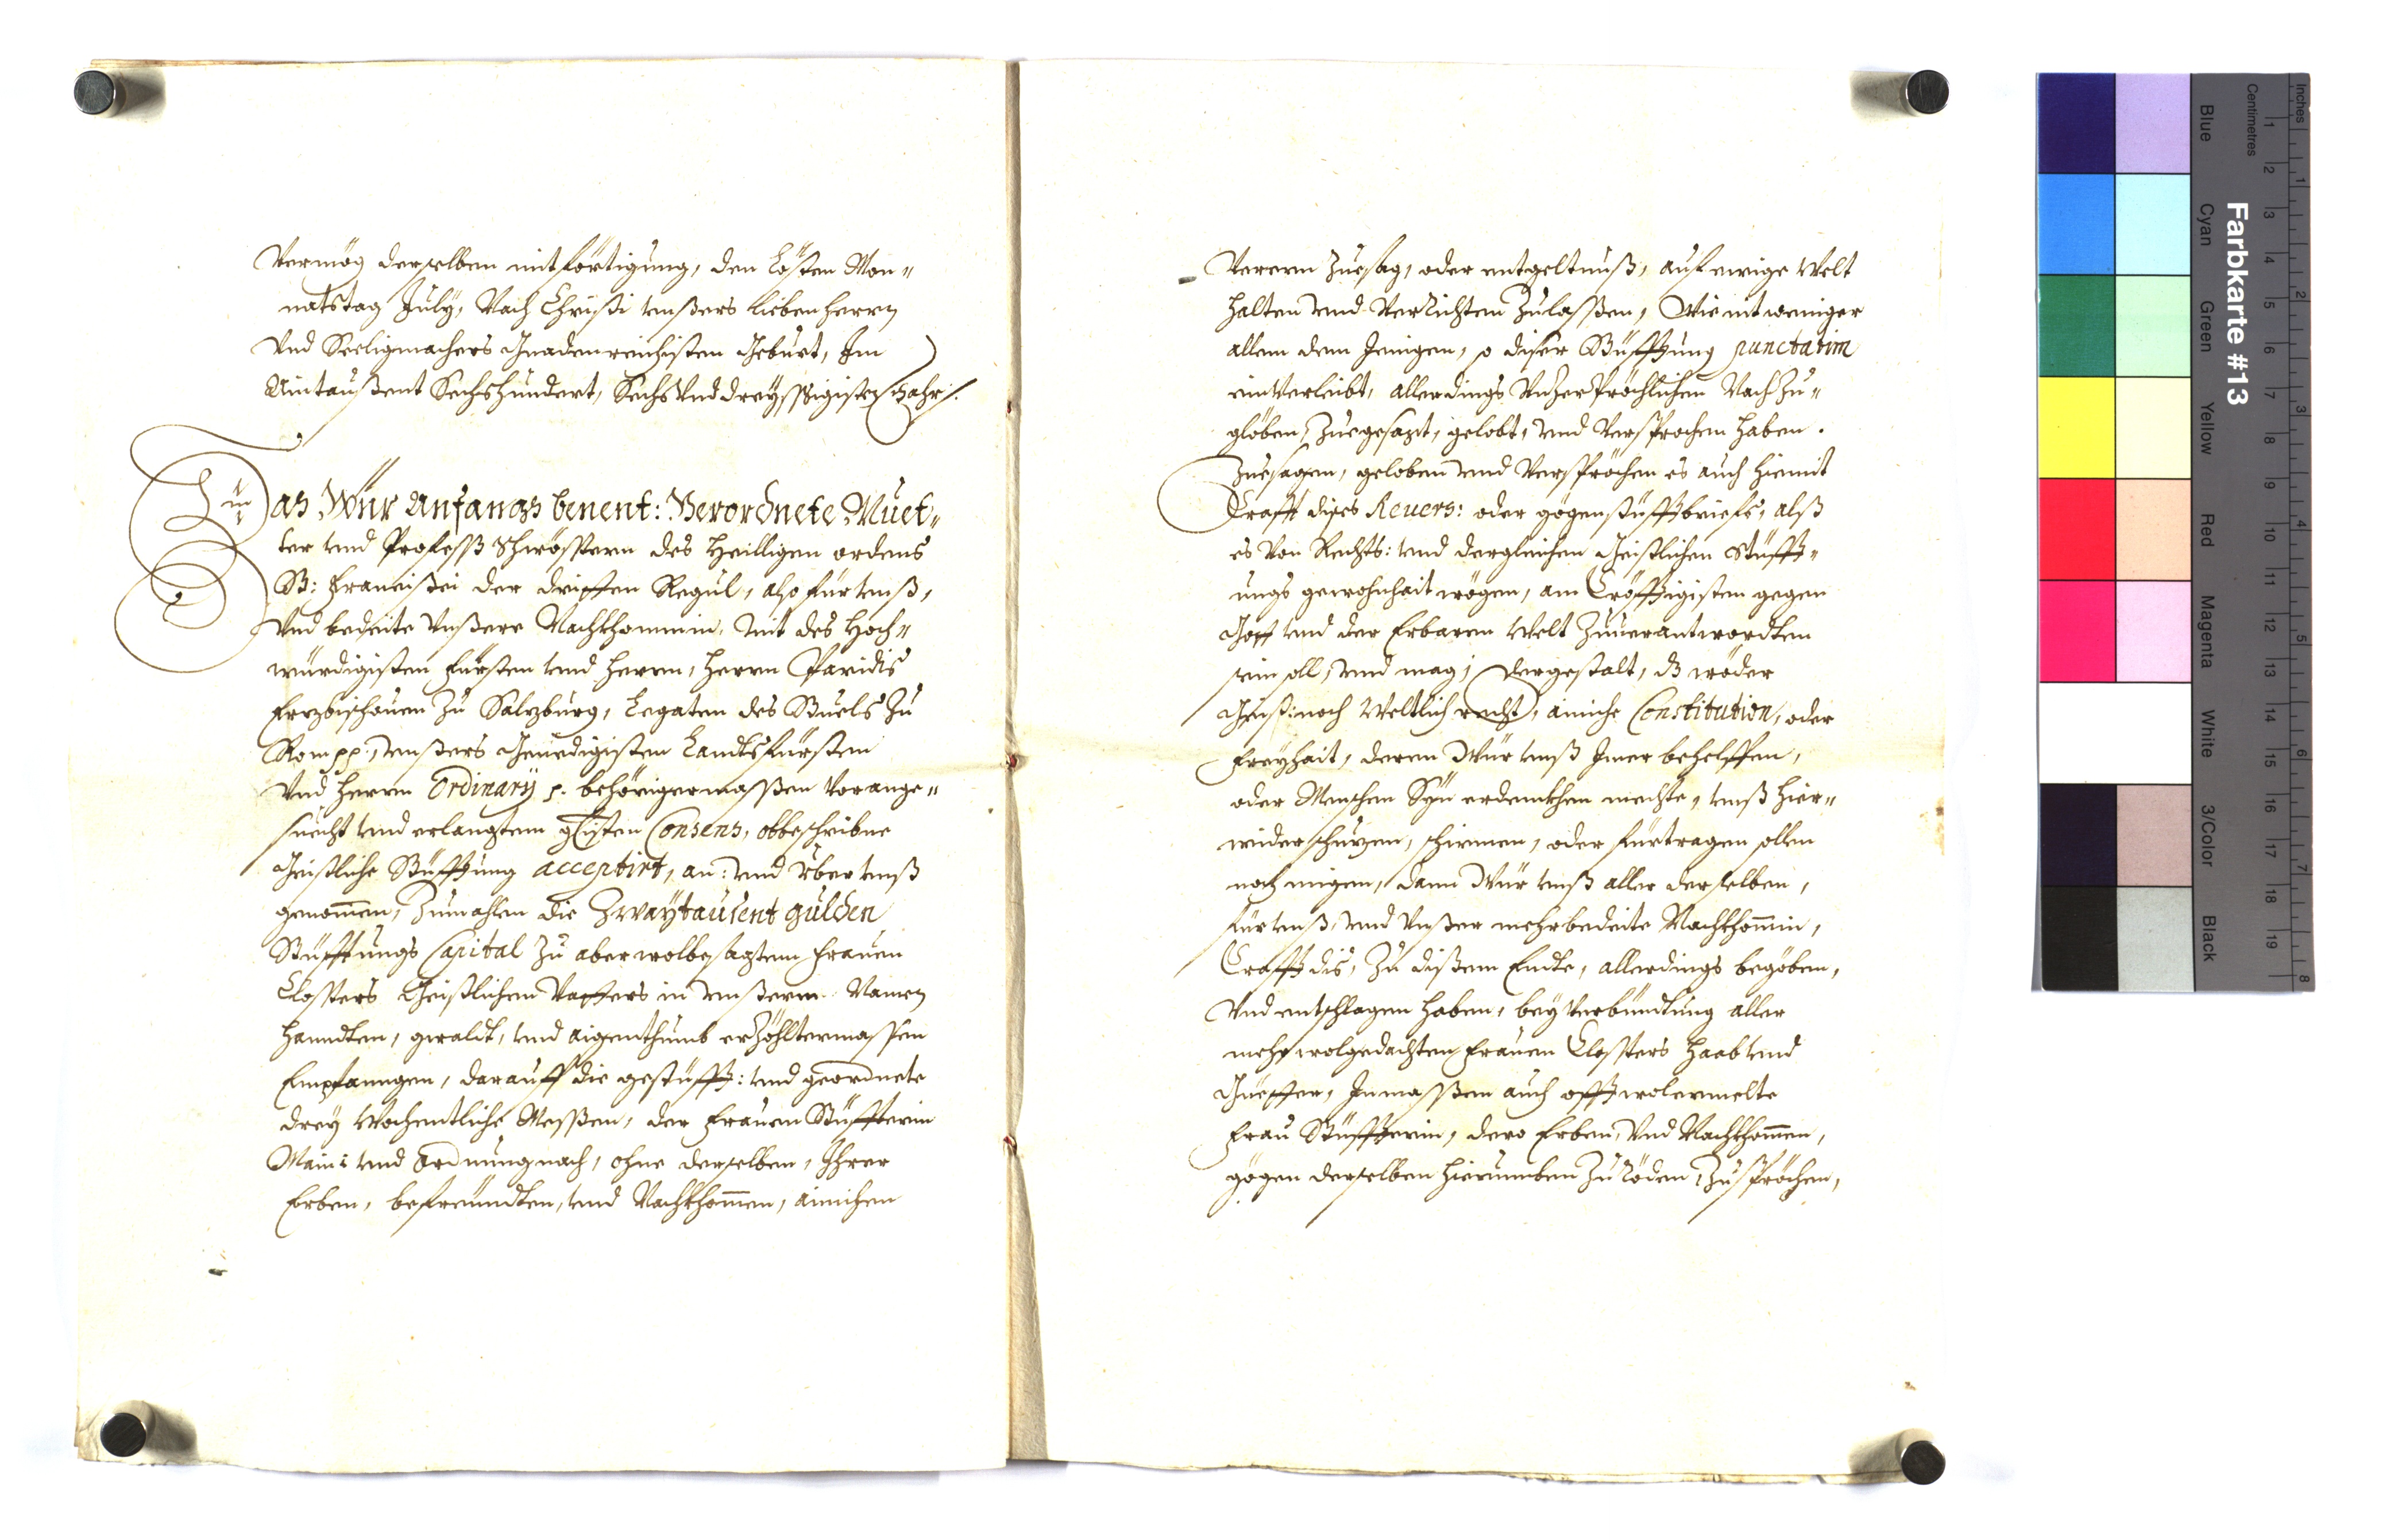 Vermög derselben mitförtigung, den Lösten Mon„
natstag July, Nach Christi unßers lieben herrn
Und Seeligmachers Gnadenreichisten Geburt, Im
Aintaußent Sechshundert, Sechs Und dreyssigisten Jahr /.
Das Wür Anfangs benent: Verordnete Muet„
ter und Profeß Schwösstern des Heilligen ordens
S: Francißci der dritten Regul, also für unß,
Und bedeite Unßere Nachkhommin, mit des Hoch„
würdigisten Fürsten und herrn, herrn Paridis
Erzbischouen zu Salzburg, Legaten des Stuels zu
Rom pp., unßers Genedigisten Landtsfürsten
Und herrn Ordinarÿ p. behörigermaßen Vorange„
suecht und erlangtem gsten Consens, obbeschribne
Geistliche Stüfftung acceptirt, an: und über unß
genommen, Zumahlen die Zwaÿtausent gulden
Stüfftungs Capital zu aberwolbesagtem Frauen
Closters Geistlichen Vatters in unßerm Namen
handten, gwaldt, und aigenthumb erzöhltermassen
Empfanngen, darauff die gestüfft: und geordnete
dreÿ wochentliche Messen, der Frauen Stüffterin
Main: und Ordnung nach, ohne derselben, Ihrer
Erben, befreundten, und Nachkhommen, ainichen
Vererrn Zuesag, oder entgeltnuß, auf ewige Welt
halten und Verrichten zulassen, Wie nit weniger
allem dem Jenigen, so diser Stüfftung punctatim
einVerleibt, allerdings UnzerSpröchlichen Nach zu„
glöben, Zuegesagt, gelobt, und VerSprochen haben.
Zuesagen, geloben und VerSpröchen es auch hiemit
Crafft dises Reuers: oder gögenstüfftbriefs, alß
es Von Rechts: und dergleichen Geistlichen Stüfft„
ungs gewohnhait wögen, am Cröfftigisten gegen
Gott und der Erbaren Welt Zuuerantwordten
sein soll, und mag; dergestalt, dz wöder
Geistl: noch Weltlich recht, ainiche Constitution, oder
Freÿhait, deren Wür unß Imer behelffen,
oder Menschen Syn erdenckhen mechte, unß hier„
wider schuzen, schirmen, oder fürtragen sollen
noch migen, dann Wür unß aller derselben,
für unß, und Unßer mehrbedeite Nachkhommin,
Crafft dis, Zu dißem Endte, allerdings begöben,
Und entschlagen haben, beÿ Verbündtung aller
mehrwolgedachten Frauen Closters Haab und
Güetter, Inmassen auch offtwolermelte
Frau Stüffterin, dero Erben, Und Nachkhommen,
gögen derselben hierumben zu Röden, zu Spröchen,